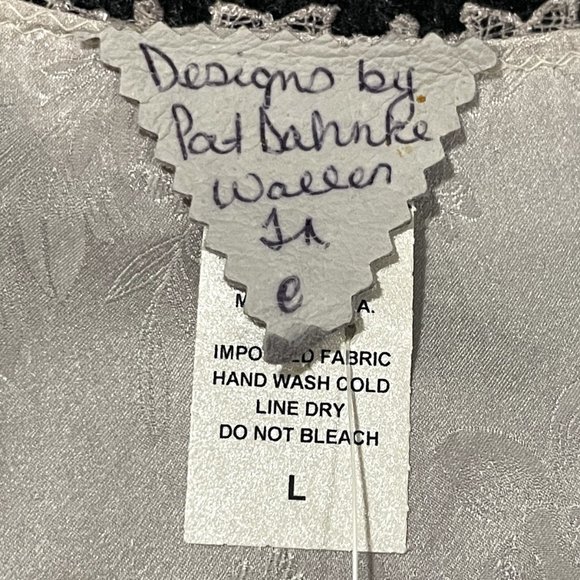 Designs by
Pat Dahnke
Wallen
e
M A.
IMPO ED FABRIC
HAND WASH COLD
LINE DRY
DO NOT BLEACH
L